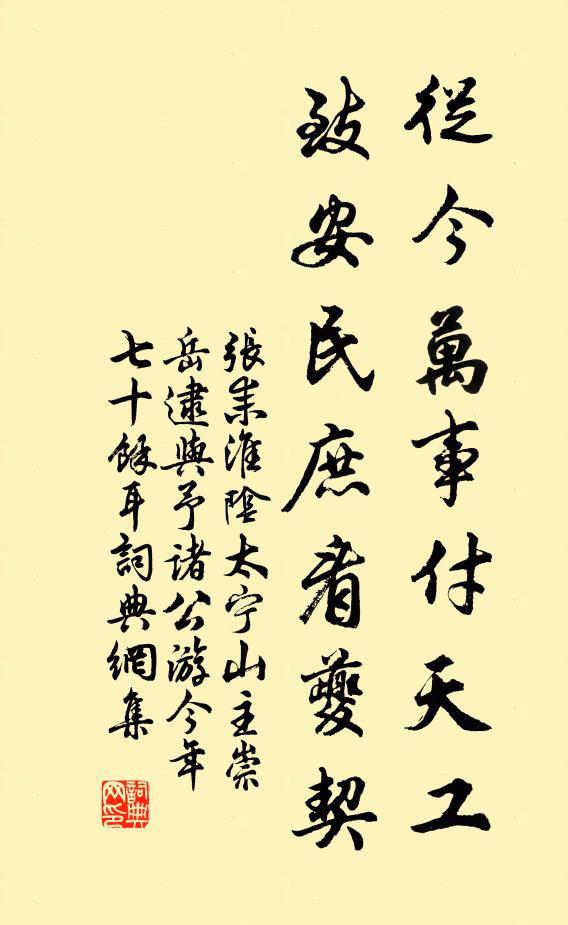 從今萬事付天工
致安民庶看夔契
張耒淮陰太宁山主崇
岳逮與予諸公游今年
七十餘耳詞典網集
詞典网印